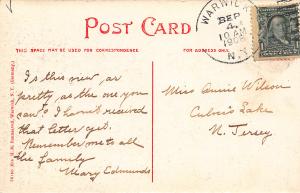 POST CARD
THIS SPACE MAY BE USED FOR CORRESPONDENCE.
FOR ADDRESS ONLY.
WARWICK
SEP
4
10 AM
N.Y.
Is this view as
pretty as the one you
saw? I havn't received
that letter yet.
Remember me to all
the family
Mary Edmunds
Miss Annie Wilson
Culver's Lake
N. Jersey
Warwick, N. Y. (Germany.)